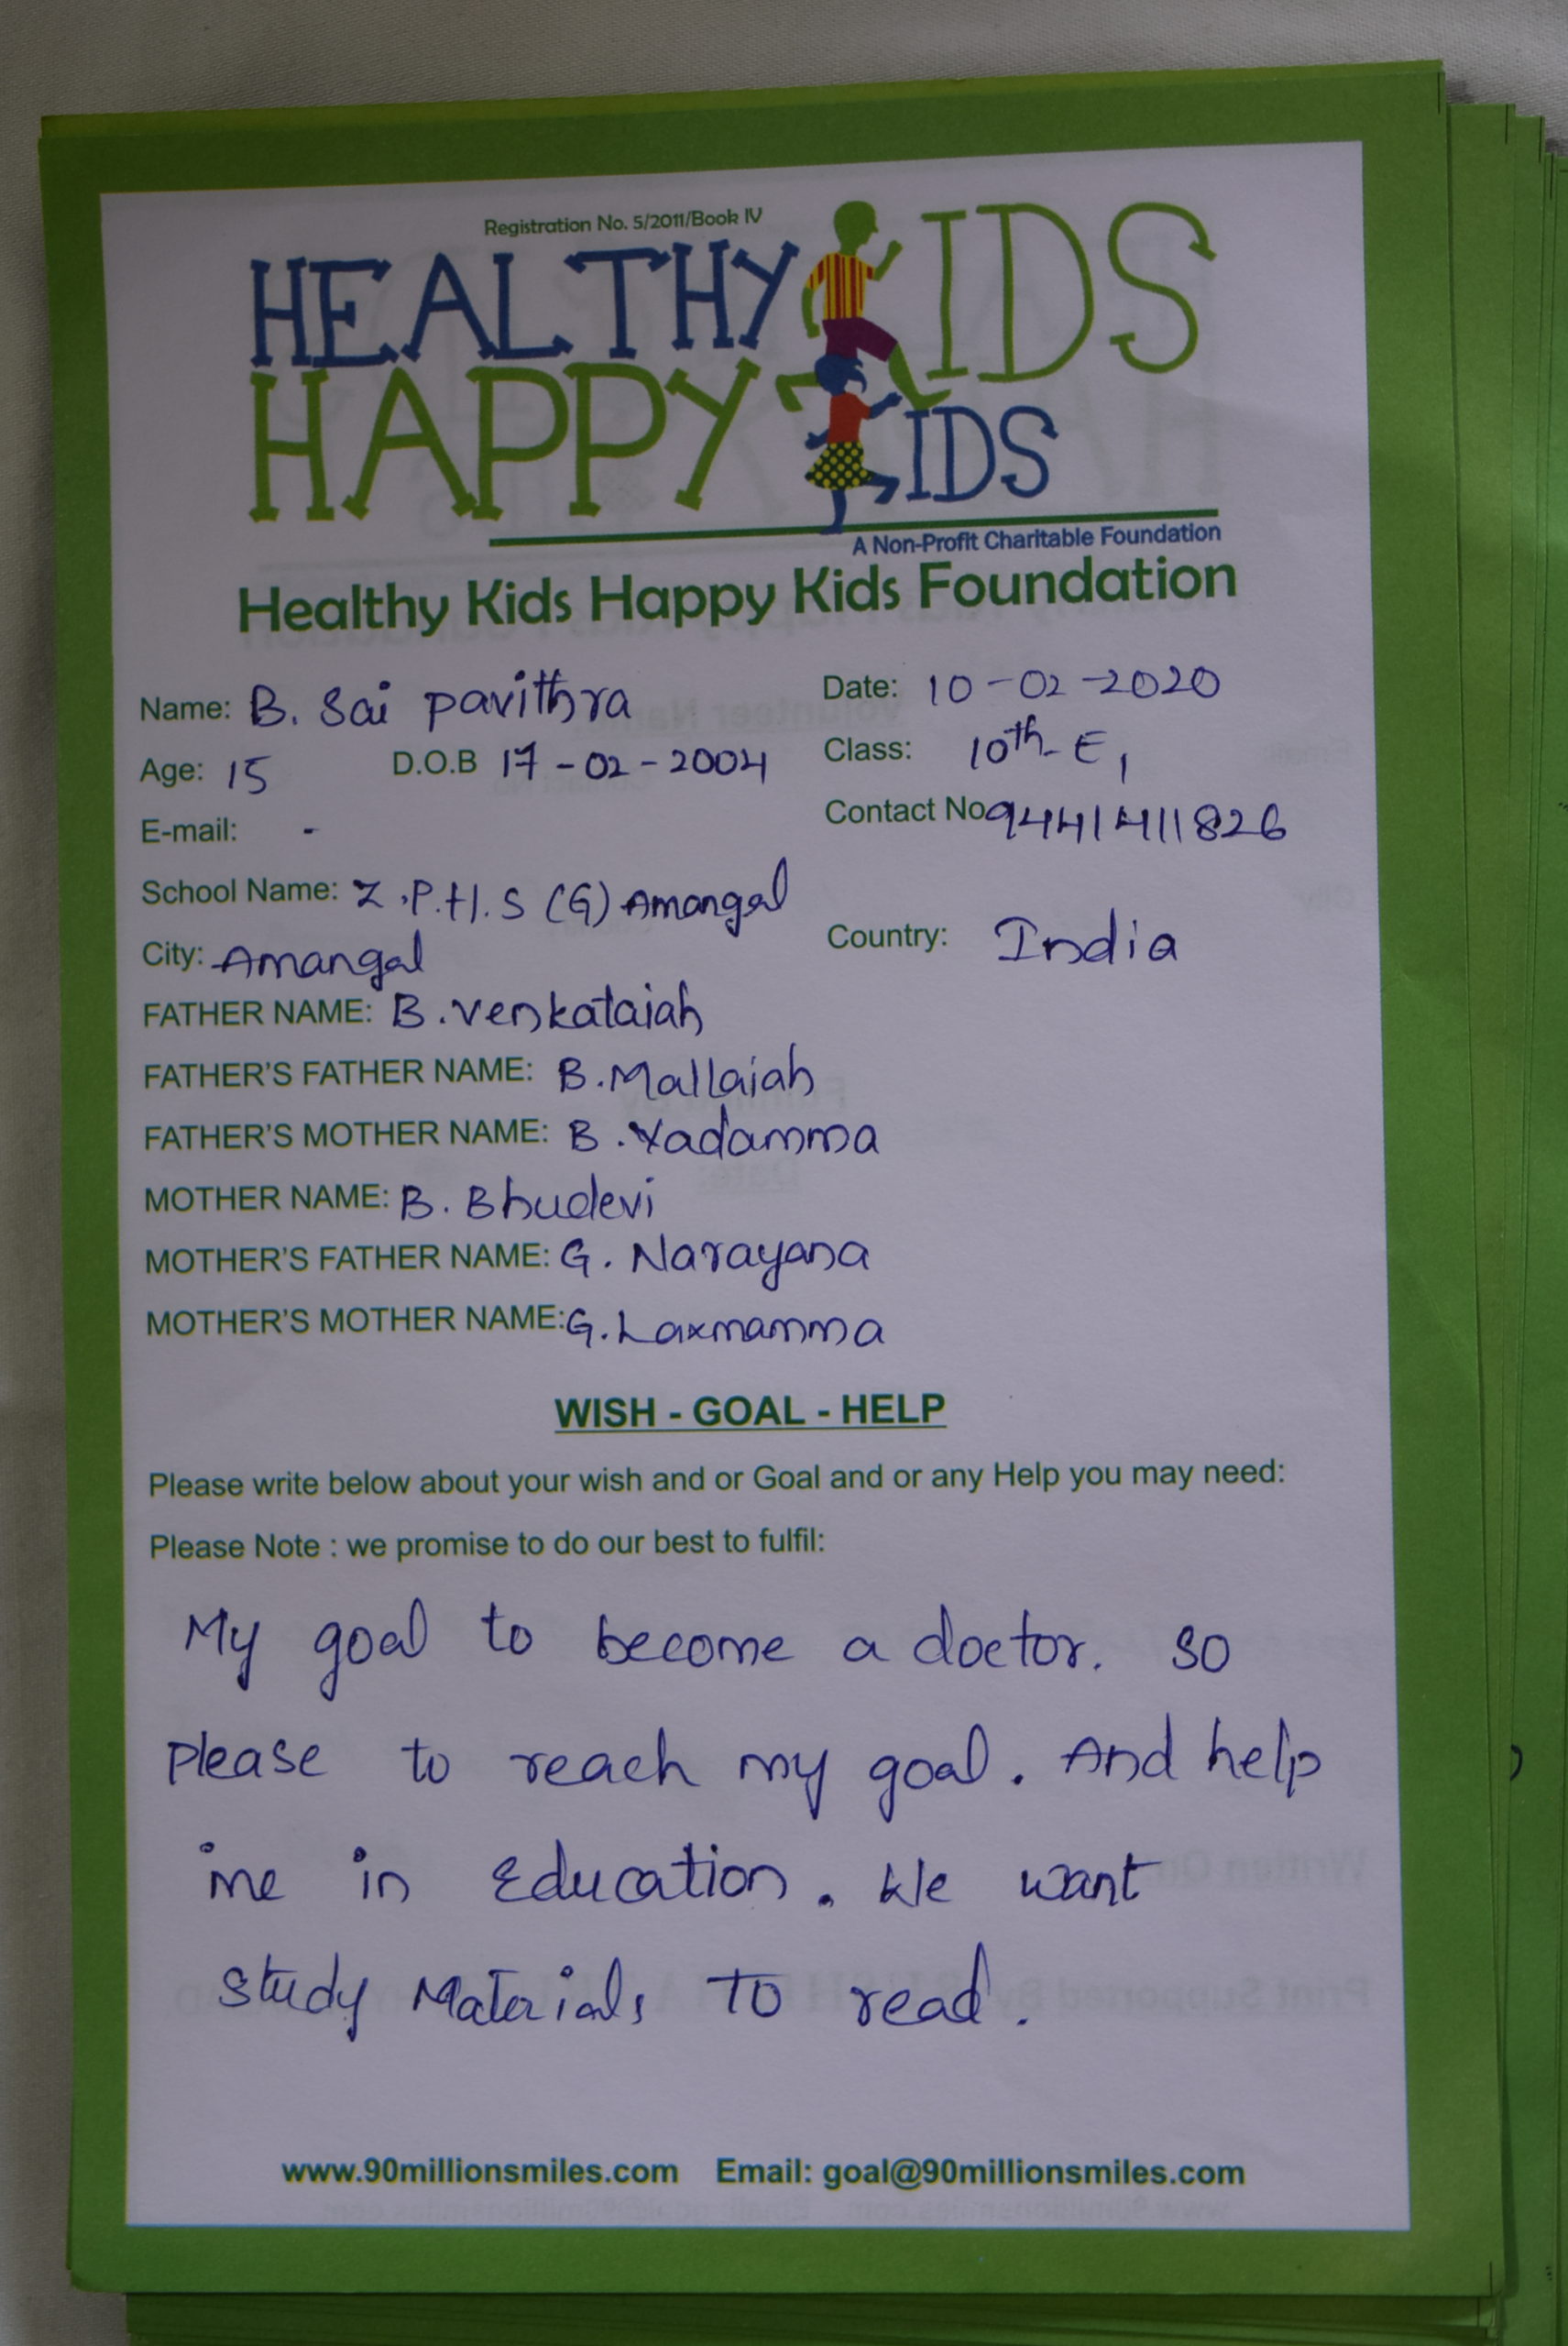 Registration No. 5/2011/Book IV
HEALTHY KIDS
HAPPY KIDS
A Non-Profit Charitable Foundation
Healthy Kids Happy Kids Foundation
Name: B. Sai pavithra Date: 10-02-2020
Age: 15 D.O.B 17-02-2004 Class: 10th E1
E-mail: - Contact No 9441411826
School Name: Z.P.H.S (G) Amangal
City: Amangal Country: India
FATHER NAME: B.venkataiah
FATHER'S FATHER NAME: B.Mallaiah
FATHER'S MOTHER NAME: B.Yadamma
MOTHER NAME: B. Bhudevi
MOTHER'S FATHER NAME: G. Narayana
MOTHER'S MOTHER NAME: G.Laxmamma
WISH - GOAL - HELP
Please write below about your wish and or Goal and or any Help you may need:
Please Note : we promise to do our best to fulfil:
My goal to become a doctor. so
please to reach my goal. And help
me in Education. We want
study Materials To read.
www.90millionsmiles.com Email: goal@90millionsmiles.com